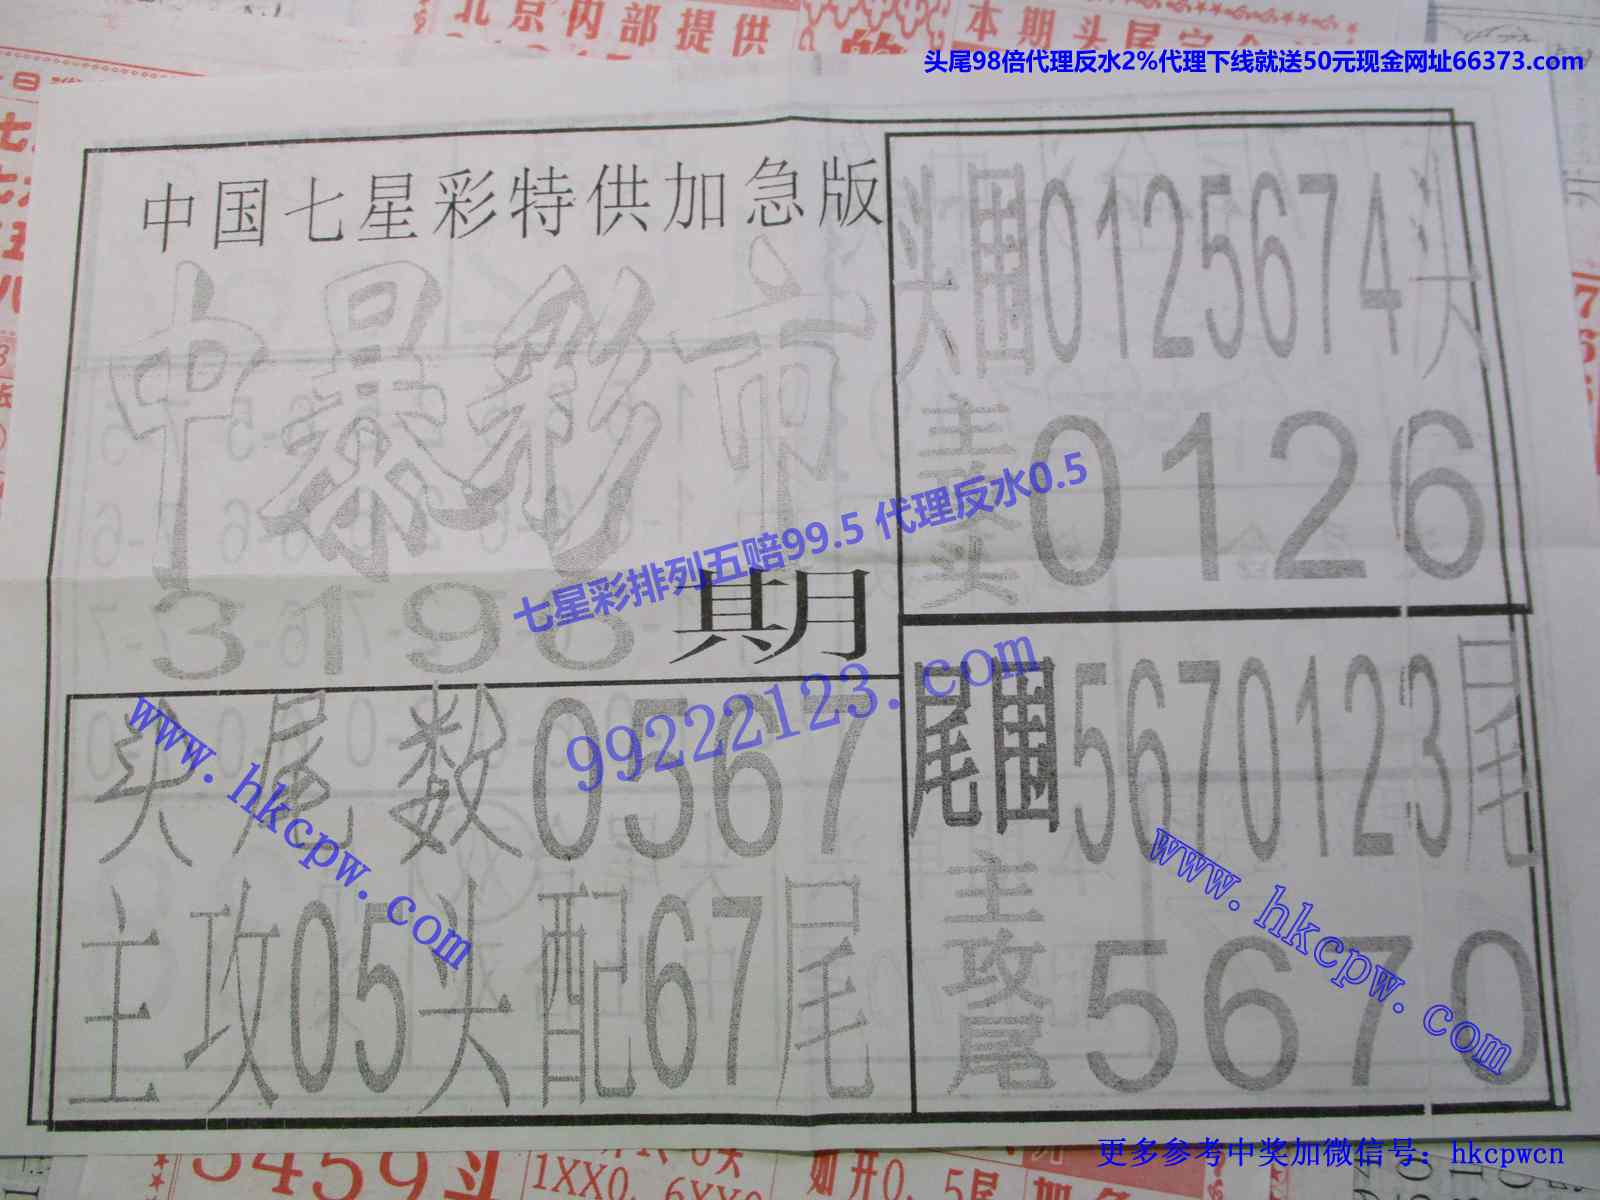 北京内部提供
本期头尾定
头尾98倍代理反水2%代理下线就送50元现金网址66373.com
中国七星彩特供加急版
中暴彩市
3196期
头围0125674头
主攻头0126
七星彩排列五赔99.5 代理反水0.5
99222123.com
尾围5670123尾
主攻尾5670
头尾数0567
主攻05头配67尾
www.hkcpw.com
www.hkcpw.com
更多参考中奖加微信号：hkcpwcn
5459头
1XX0.
如开0.5尾